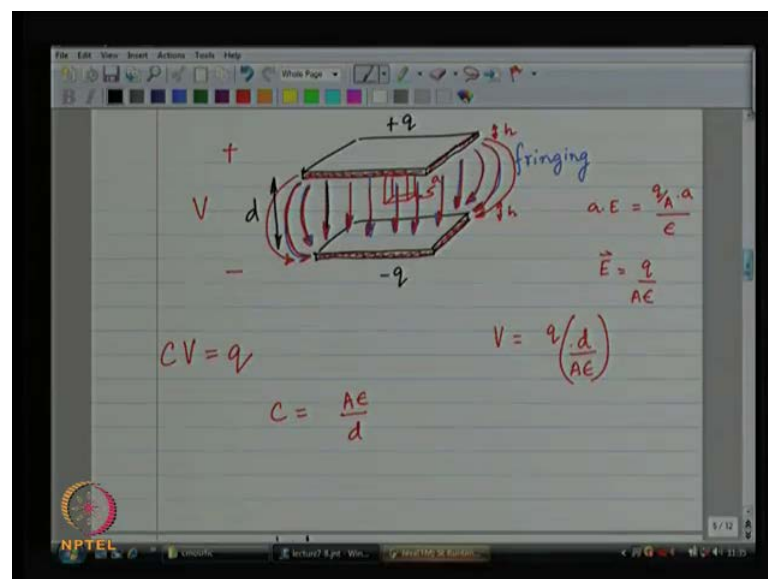 File Edit View Insert Actions Tools Help
Whole Page
B I
+q
h
+
fringing
a
V
d
h
a.E = q/A.a / ε
-
-q
E = q / Aε
CV = q
V = q (.d / Aε)
C = Aε / d
5 / 12
NPTEL
cmosrfic
lecture7-8.jnt - Win...
11:35